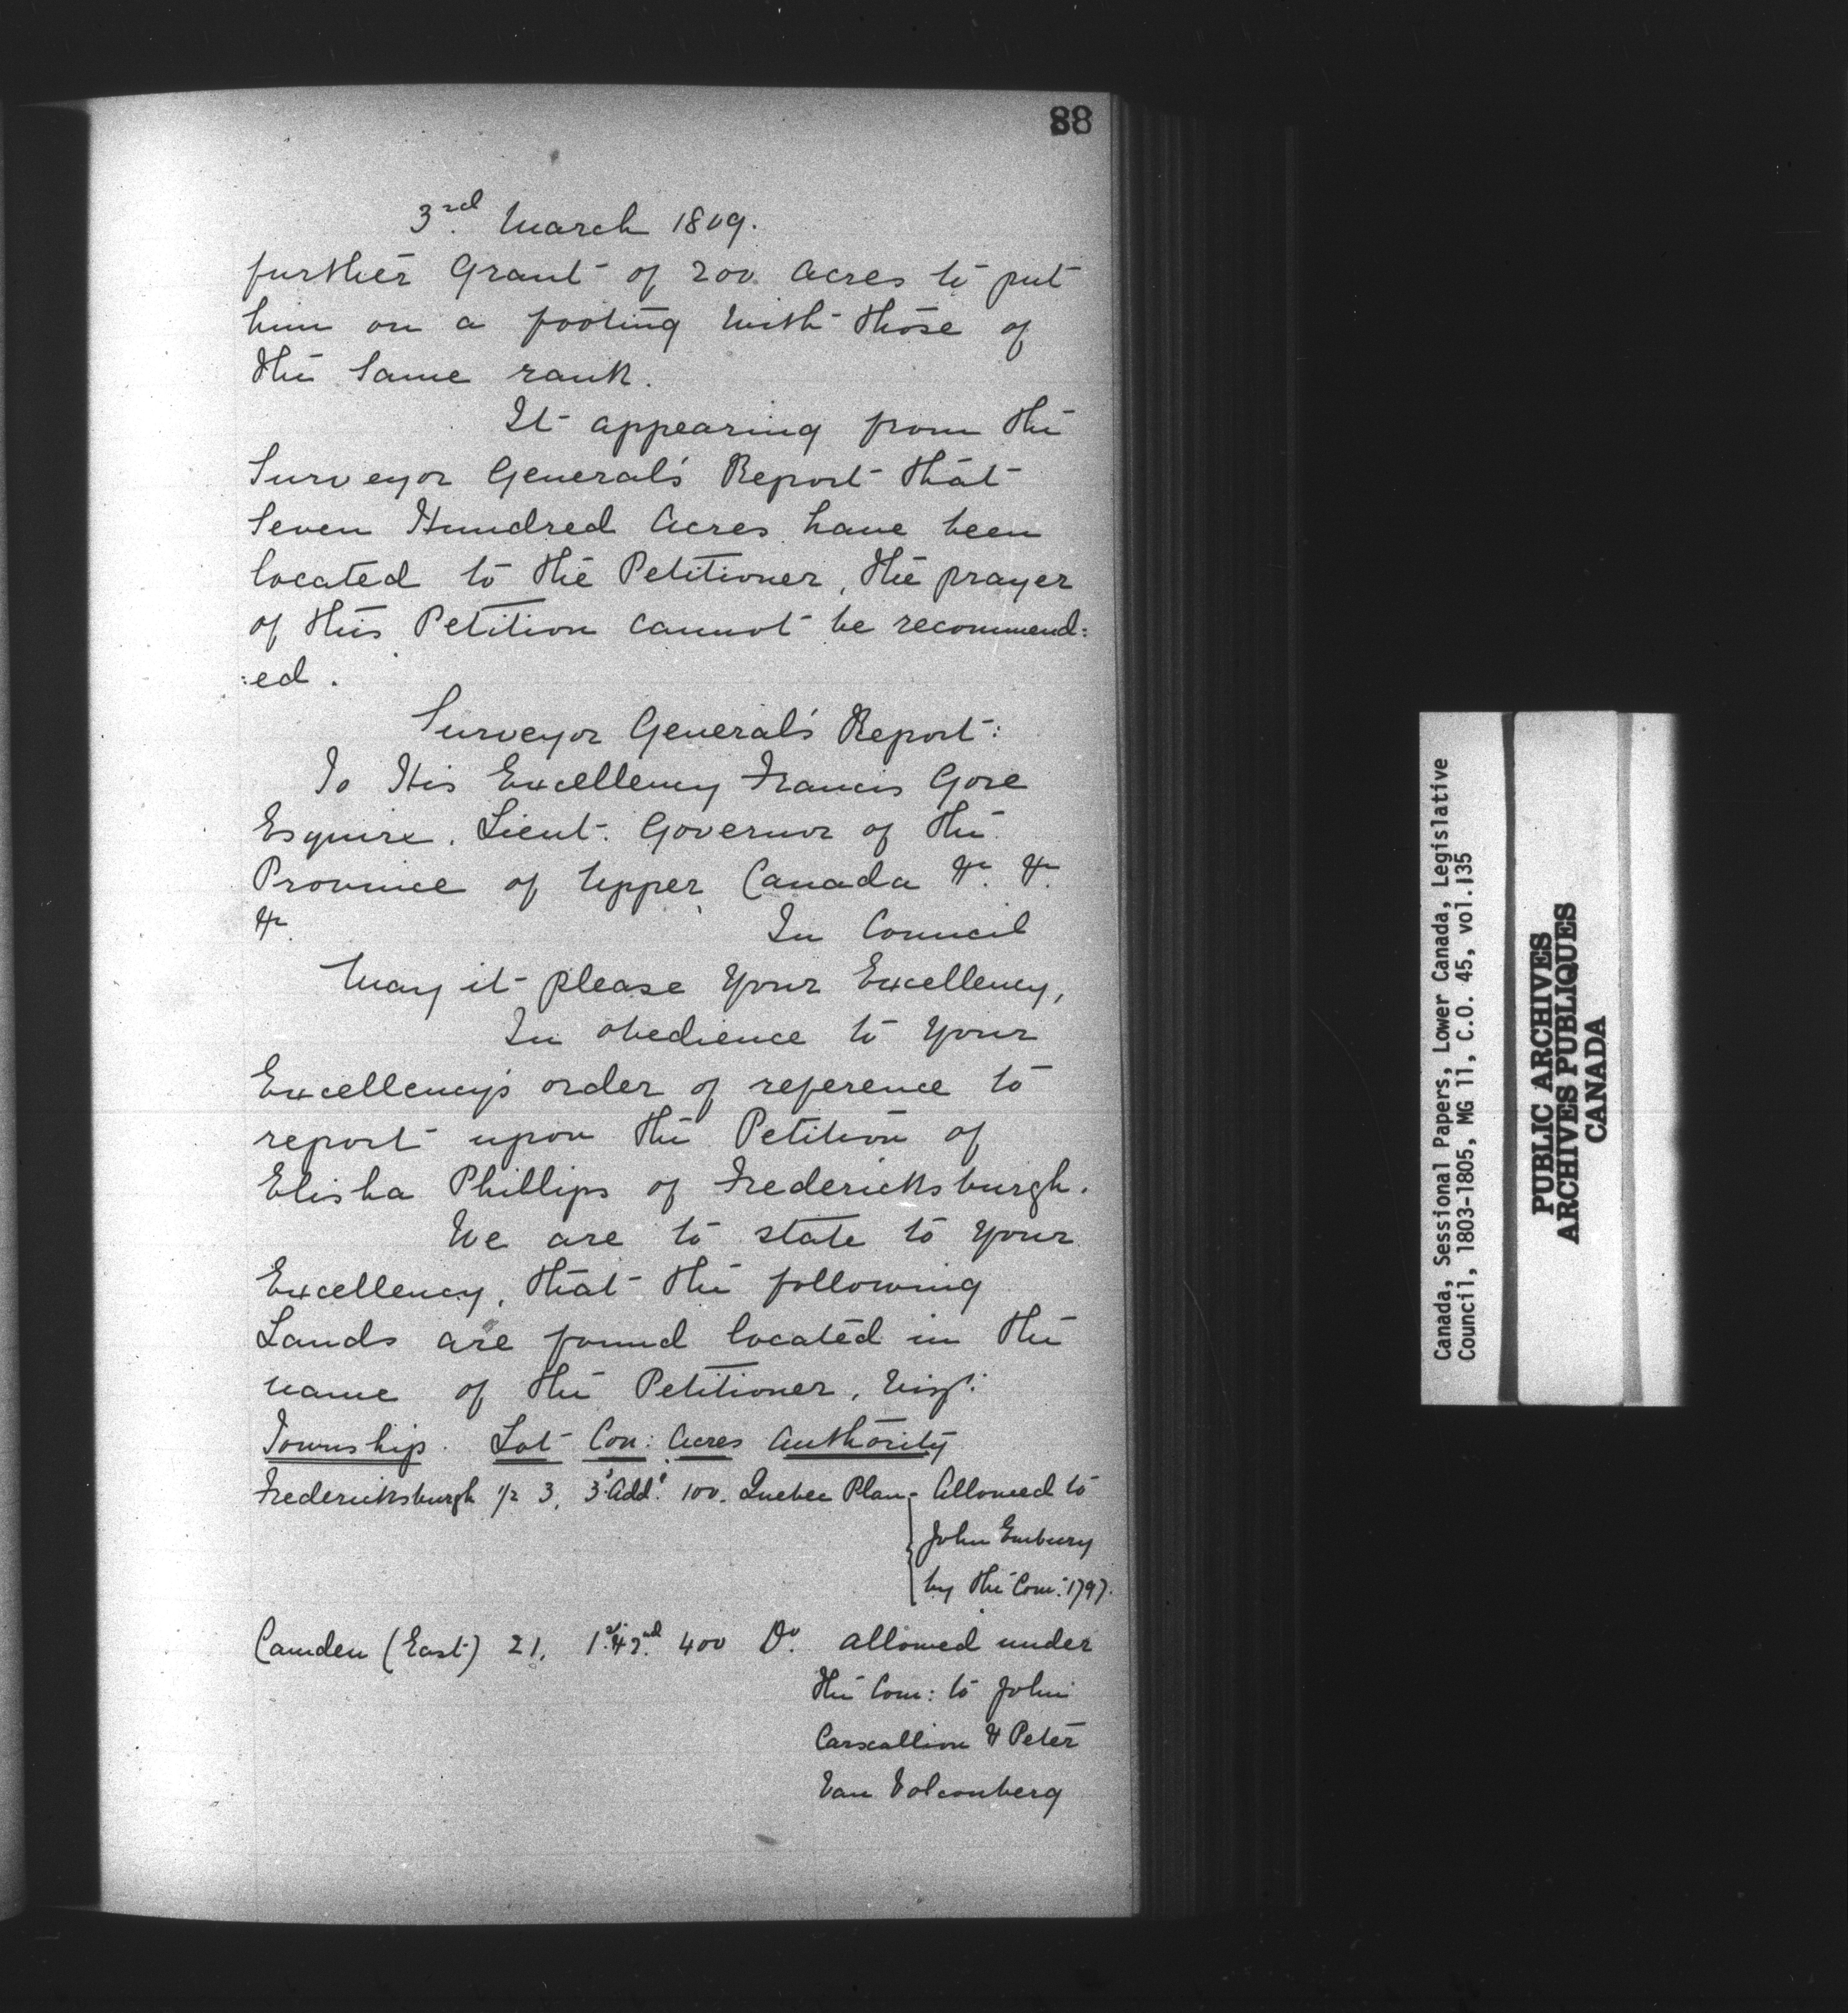 88
3rd. March 1809.
further Grant of 200 Acres to put
him on a footing with those of
the same rank.
It appearing from the
Surveyor General's Report that
Seven Hundred Acres have been
located to the Petitioner, the prayer
of this Petition cannot be recommend:
:ed.
Surveyor General's Report:
To His Excellency Francis Gore
Esquire. Lieut. Governor of the
Province of Upper Canada &c. &c.
&c. In Council
May it please Your Excellency,
In obedience to Your
Excellency's order of reference to
report upon the Petition of
Elisha Phillips of Fredericksburgh.
We are to state to Your
Excellency, that the following
Lands are found located in the
name of the Petitioner, Vizt:
Township. Lot Con: Acres Authority
Fredericksburgh 1/2 3, 3d. Addl. 100. Quebec Plan - Allowed to
John Embury
by the Com: 1797.
Camden (East) 21, 1st. & 2nd. 400 Do. allowed under
the Com: to John
Carscallion & Peter
Van Volconberg
Canada, Sessional Papers, Lower Canada, Legislative
Council, 1803-1805, MG 11, C.O. 45, vol.135
PUBLIC ARCHIVES
ARCHIVES PUBLIQUES
CANADA